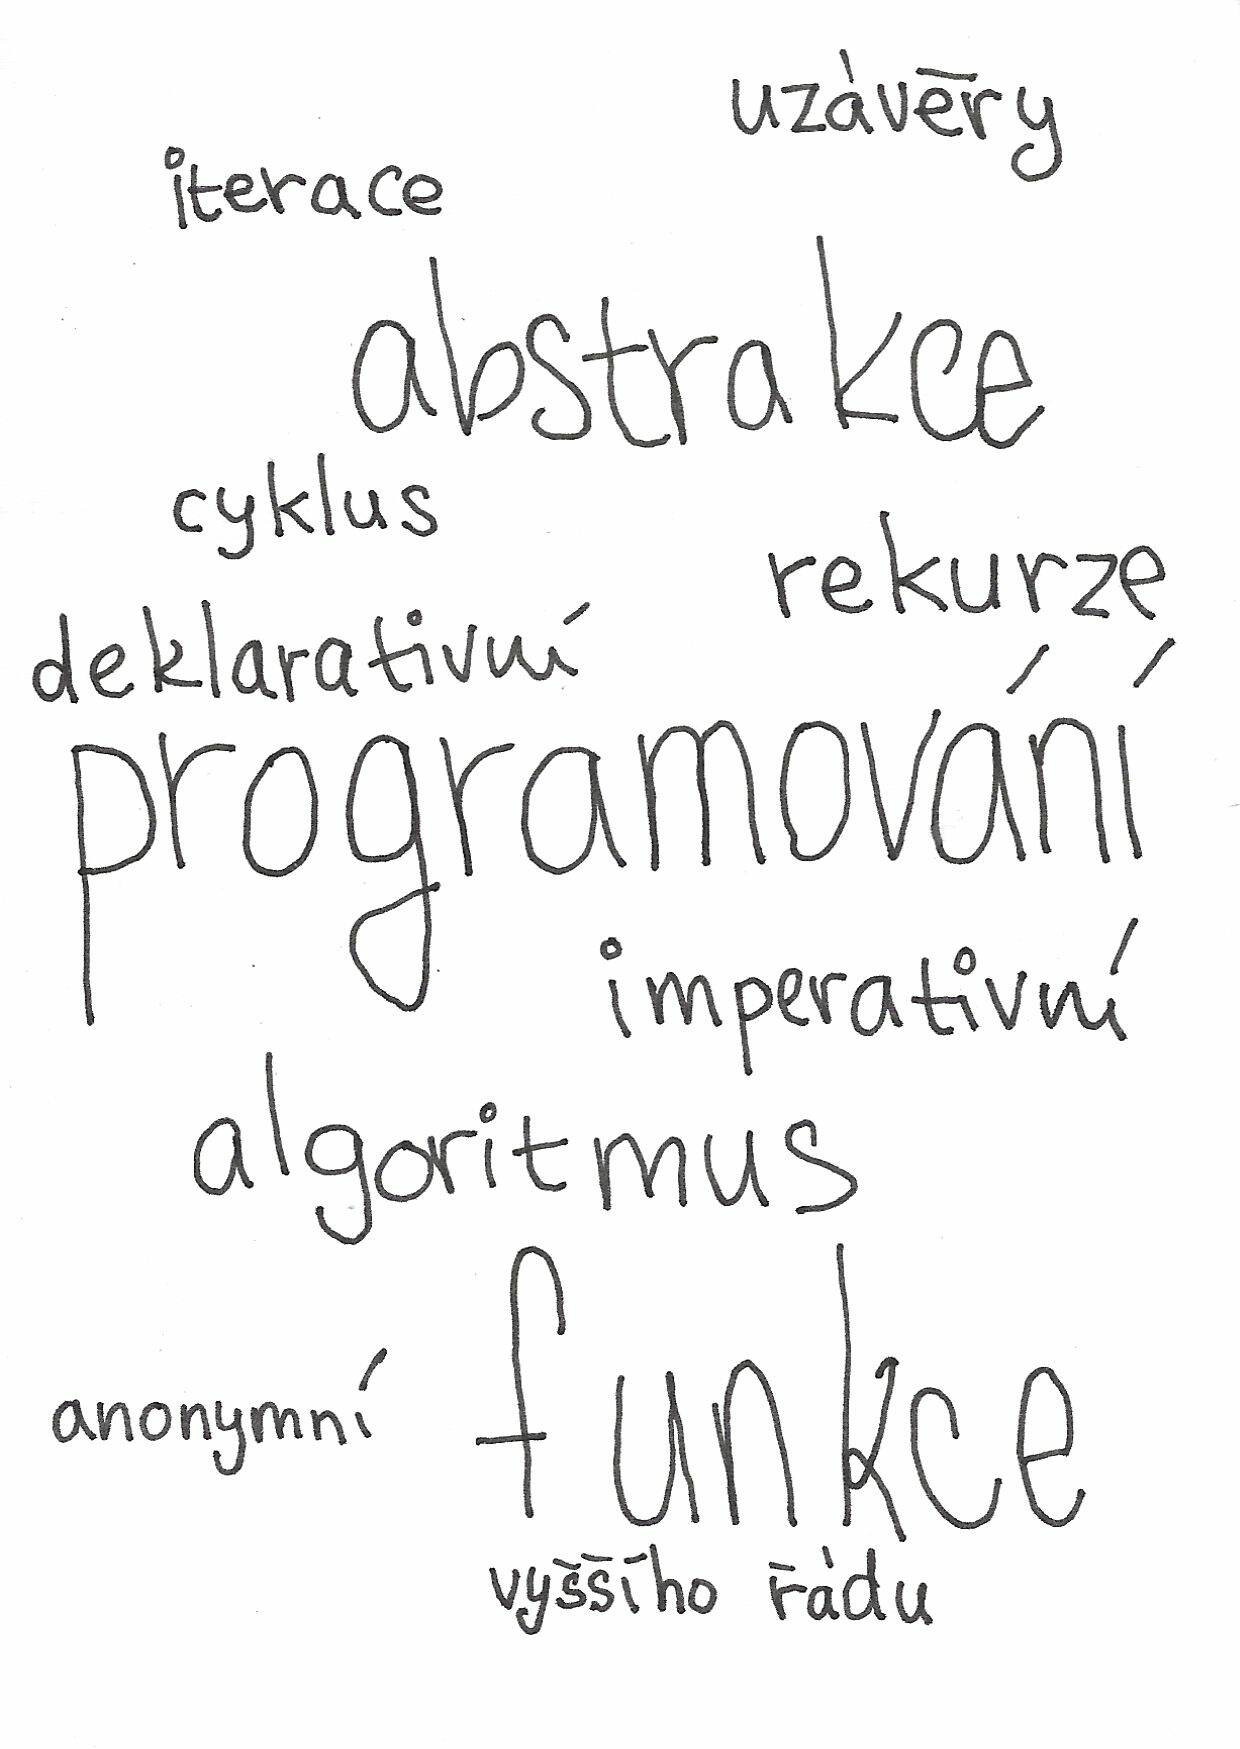 uzávěry
iterace
abstrakce
cyklus
rekurze
deklarativní
programování
imperativní
algoritmus
anonymní funkce
vyššího řádu